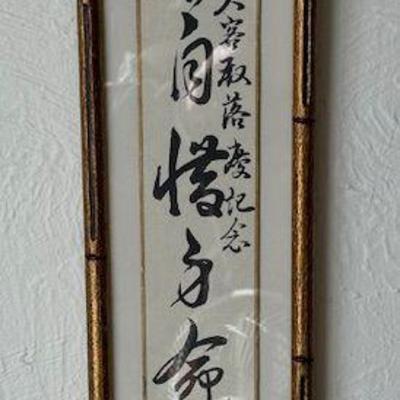 大客殿落慶記念
自惜身命